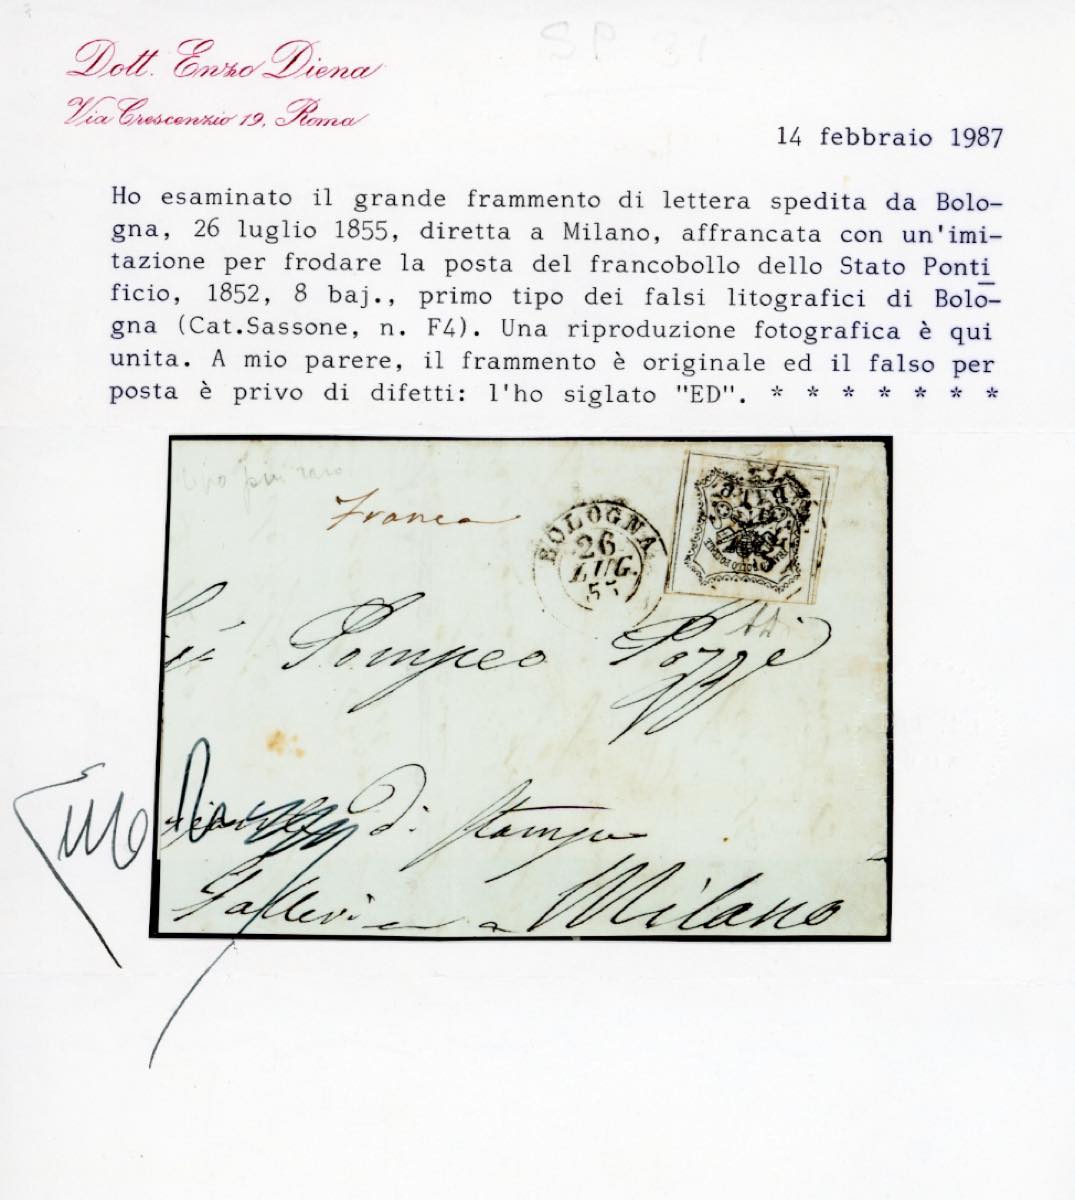 SP 31
Dott. Enzo Diena
Via Crescenzio 19, Roma
14 febbraio 1987
Ho esaminato il grande frammento di lettera spedita da Bolo-
gna, 26 luglio 1855, diretta a Milano, affrancata con un'imi-
tazione per frodare la posta del francobollo dello Stato Ponti
ficio, 1852, 8 baj., primo tipo dei falsi litografici di Bolo-
gna (Cat.Sassone, n. F4). Una riproduzione fotografica è qui
unita. A mio parere, il frammento è originale ed il falso per
posta è privo di difetti: l'ho siglato "ED". * * * * * * *
Franca
BOLOGNA
26
LUG.
55
Pompeo Pozzi
di Stampe
a Milano